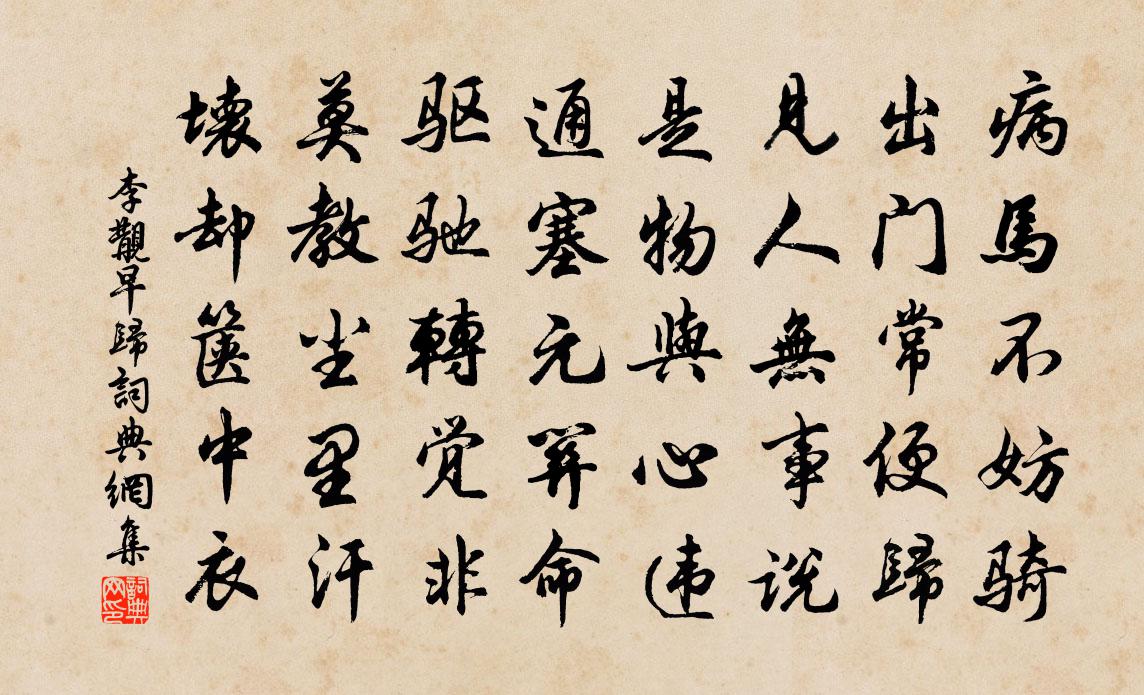 病馬不妨骑
出门常便歸
見人無事説
是物與心违
通塞元關命
驱驰轉觉非
莫教尘里汗
壞却箧中衣
李覯早歸詞典網集
詞典网印